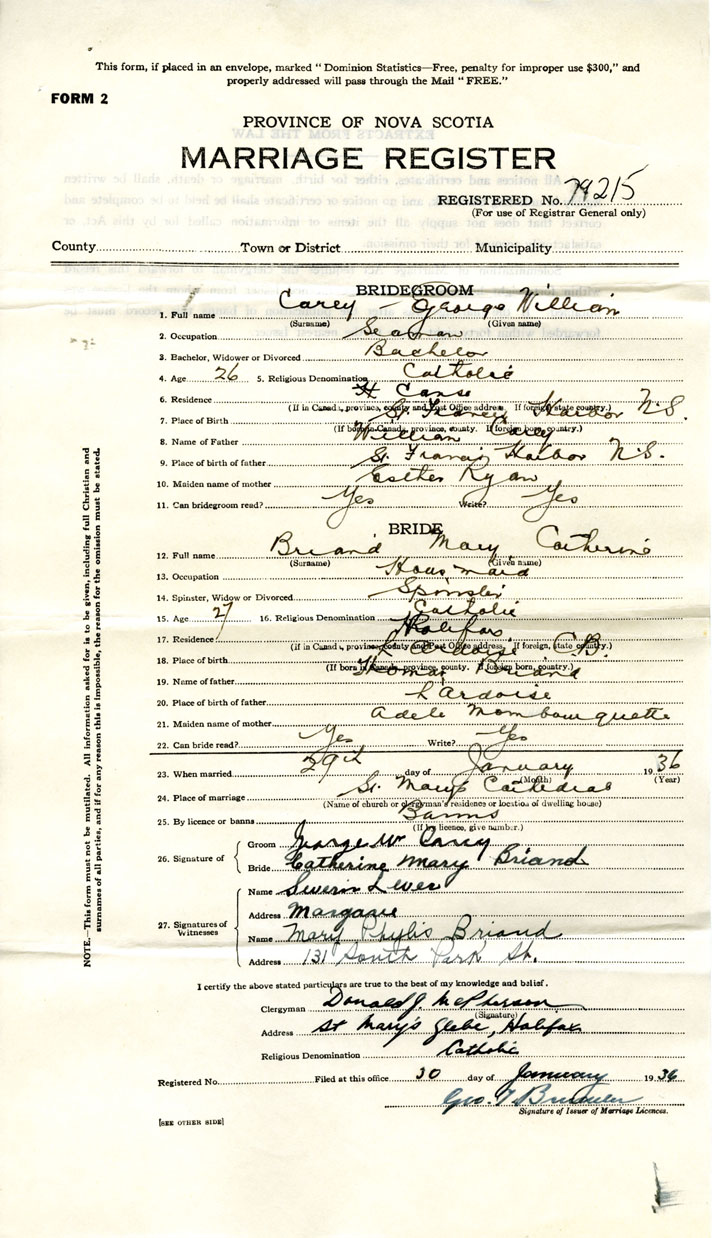 This form, if placed in an envelope, marked "Dominion Statistics—Free, penalty for improper use $300," and
properly addressed will pass through the Mail "FREE."
FORM 2
PROVINCE OF NOVA SCOTIA
MARRIAGE REGISTER
REGISTERED No. 79215
(For use of Registrar General only)
County Town or District Municipality
BRIDEGROOM
1. Full name Carey - George William
(Surname) (Given name)
2. Occupation Seaman
3. Bachelor, Widower or Divorced Bachelor
4. Age 26 5. Religious Denomination Catholic
6. Residence Canso
(If in Canada, province, county and Post Office address. If foreign, state country.)
7. Place of Birth St. Francis Harbor N.S.
(If born in Canada, province, county. If foreign born, country.)
8. Name of Father William Carey
9. Place of birth of father St. Francis Harbor N.S.
10. Maiden name of mother Esther Ryan
11. Can bridegroom read? Yes Write? Yes
BRIDE
12. Full name Briand Mary Catherine
(Surname) (Given name)
13. Occupation Housmaid
14. Spinster, Widow or Divorced Spinster
15. Age 27 16. Religious Denomination Catholic
17. Residence Halifax
(If in Canada, province, county and Post Office address. If foreign, state country.)
18. Place of birth L'Ardoise C.B.
(If born in Canada, province, county. If foreign born, country.)
19. Name of father Thomas Briand
20. Place of birth of father L'Ardoise
21. Maiden name of mother Adele Mombourquette
22. Can bride read? Yes Write? Yes
23. When married 29th day of January 1936
(Month) (Year)
24. Place of marriage St. Mary's Cathedral
(Name of church or clergyman's residence or location of dwelling house)
25. By licence or banns Banns
(If by licence, give number.)
26. Signature of
Groom George W Carey
Bride Catherine Mary Briand
27. Signatures of Witnesses
Name
Address Margaree
Name Mary Phylis Briand
Address 131 South Park St.
I certify the above stated particulars are true to the best of my knowledge and belief.
Clergyman Donald J. McPherson
(Signature)
Address St Mary's Glebe, Halifax
Religious Denomination Catholic
Registered No. Filed at this office 30 day of January 1936
Geo.
Signature of Issuer of Marriage Licences.
[SEE OTHER SIDE]
NOTE.—This form must not be mutilated. All information asked for is to be given, including full Christian and
surnames of all parties, and if for any reason this is impossible, the reason for the omission must be stated.